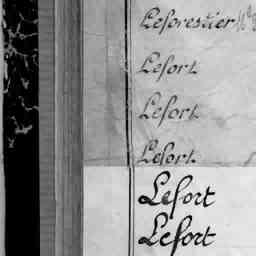 Leforestier
Lefort
Lefort
Lefort
Lefort
Lefort